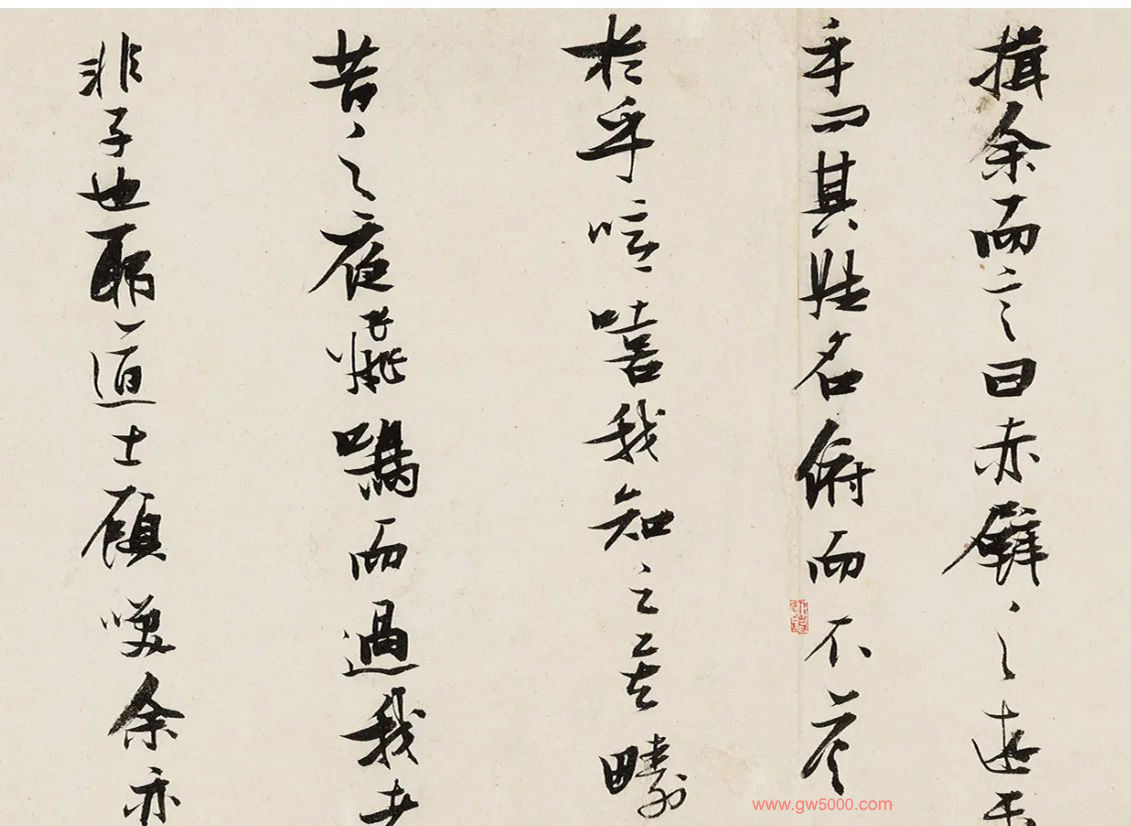 揖余而言曰赤壁之遊樂
乎問其姓名俯而不答
於乎噫嘻我知之矣疇
昔之夜飛鳴而過我者
非子也耶道士顧咲余亦
www.gw5000.com